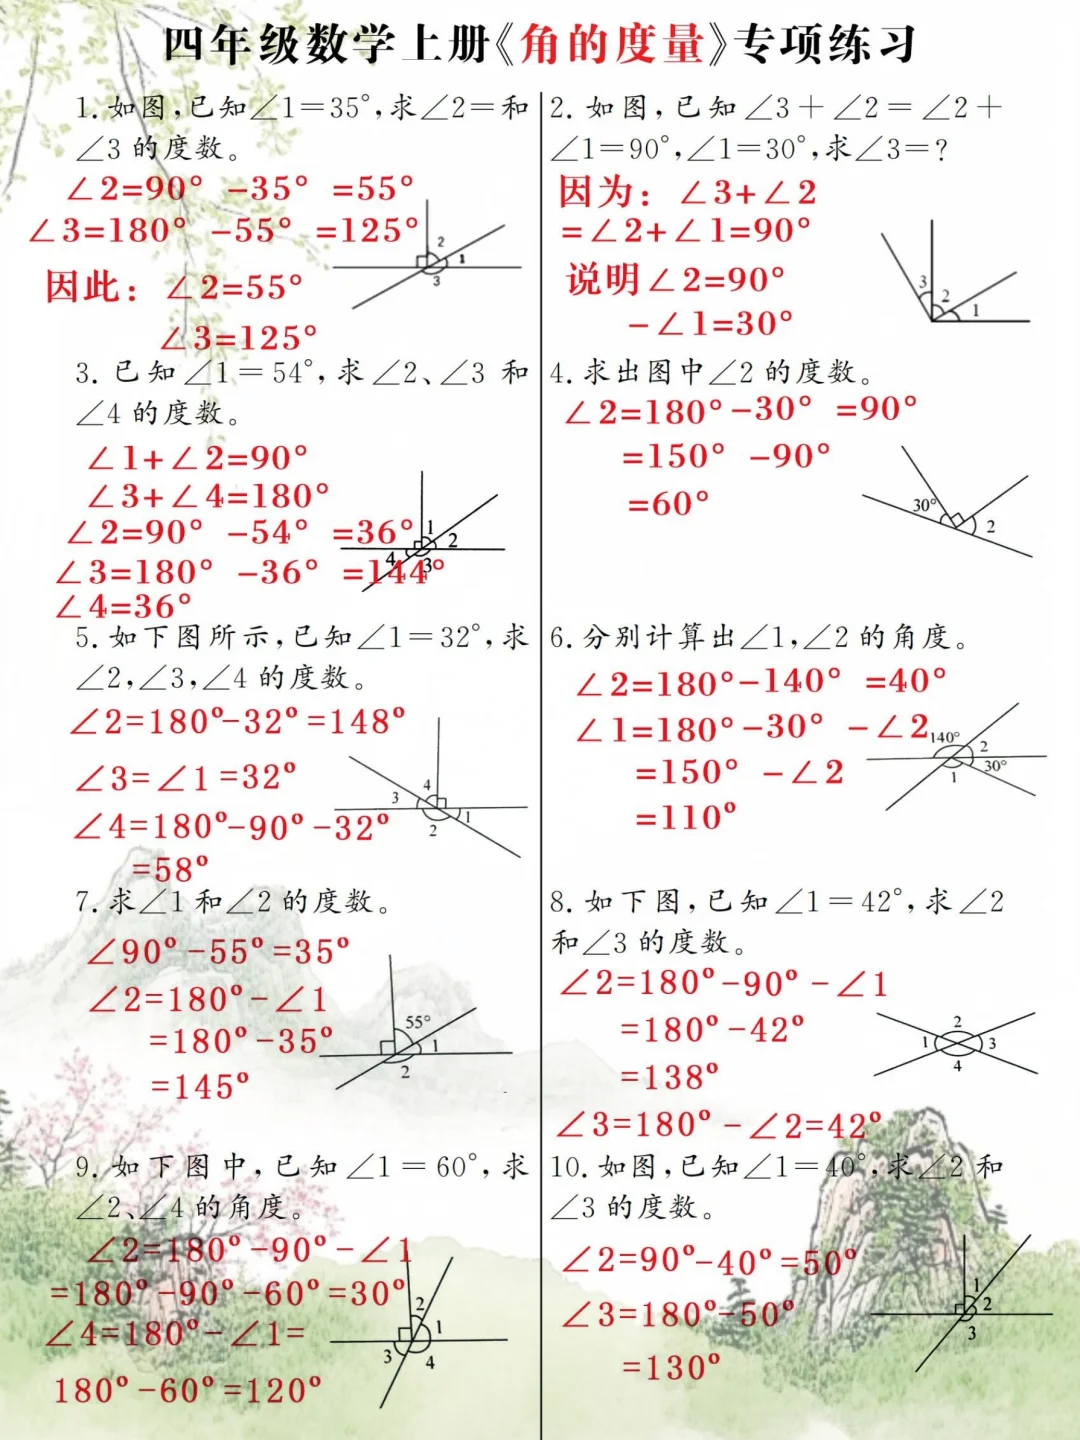 四年级数学上册《角的度量》专项练习
1. 如图,已知∠1=35°,求∠2=和
∠3 的度数。
∠2=90° -35° =55°
∠3=180° -55° =125°
因此：∠2=55°
∠3=125°
2
1
3
2. 如图,已知∠3+∠2=∠2+
∠1=90°,∠1=30°,求∠3=?
因为：∠3+∠2
=∠2+∠1=90°
说明∠2=90°
-∠1=30°
3
2
1
3. 已知∠1=54°,求∠2、∠3 和
∠4 的度数。
∠1+∠2=90°
∠3+∠4=180°
∠2=90° -54° =36°
∠3=180° -36° =144°
∠4=36°
1
2
4
3
4. 求出图中∠2 的度数。
∠2=180°-30° =90°
=150° -90°
=60°
30°
2
5. 如下图所示,已知∠1=32°,求
∠2,∠3,∠4 的度数。
∠2=180°-32°=148°
∠3=∠1=32°
∠4=180°-90°-32°
=58°
4
3
1
2
6. 分别计算出∠1,∠2 的角度。
∠2=180°-140° =40°
∠1=180°-30° -∠2
=150° -∠2
=110°
140°
2
30°
1
7. 求∠1 和∠2 的度数。
∠90°-55°=35°
∠2=180°-∠1
=180°-35°
=145°
55°
1
2
8. 如下图,已知∠1=42°,求∠2
和∠3 的度数。
∠2=180°-90°-∠1
=180°-42°
=138°
∠3=180°-∠2=42°
2
1
3
4
9. 如下图中,已知∠1=60°,求
∠2、∠4 的角度。
∠2=180°-90°-∠1
=180°-90°-60°=30°
∠4=180°-∠1=
180°-60°=120°
2
1
3
4
10. 如图,已知∠1=40°,求∠2 和
∠3 的度数。
∠2=90°-40°=50°
∠3=180°-50°
=130°
1
2
3